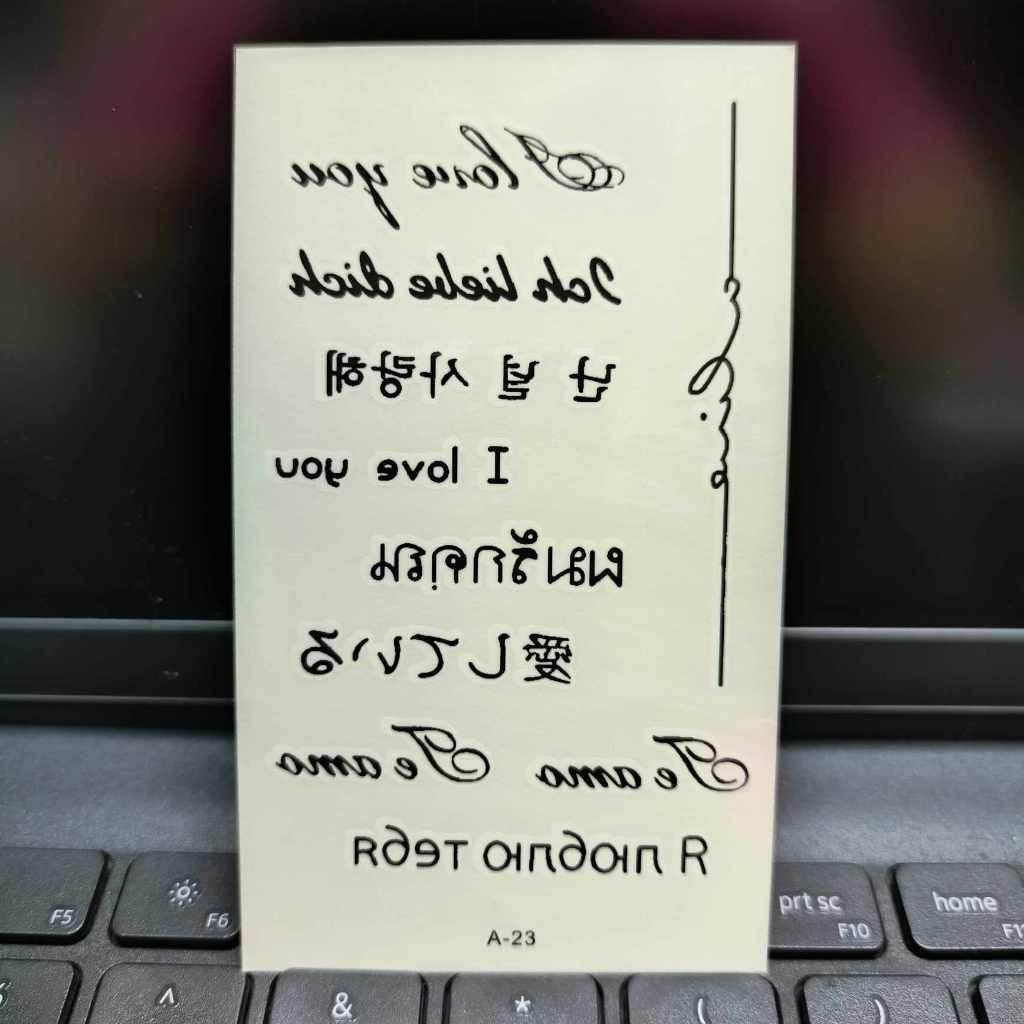 I love you
Ich liebe dich
난 널 사랑해
I love you
ผมรักคุณ
愛している
Te amo Te amo
Я люблю тебя
A-23
F5
F6
prt sc
F10
home
F11
^
&
*
(
)